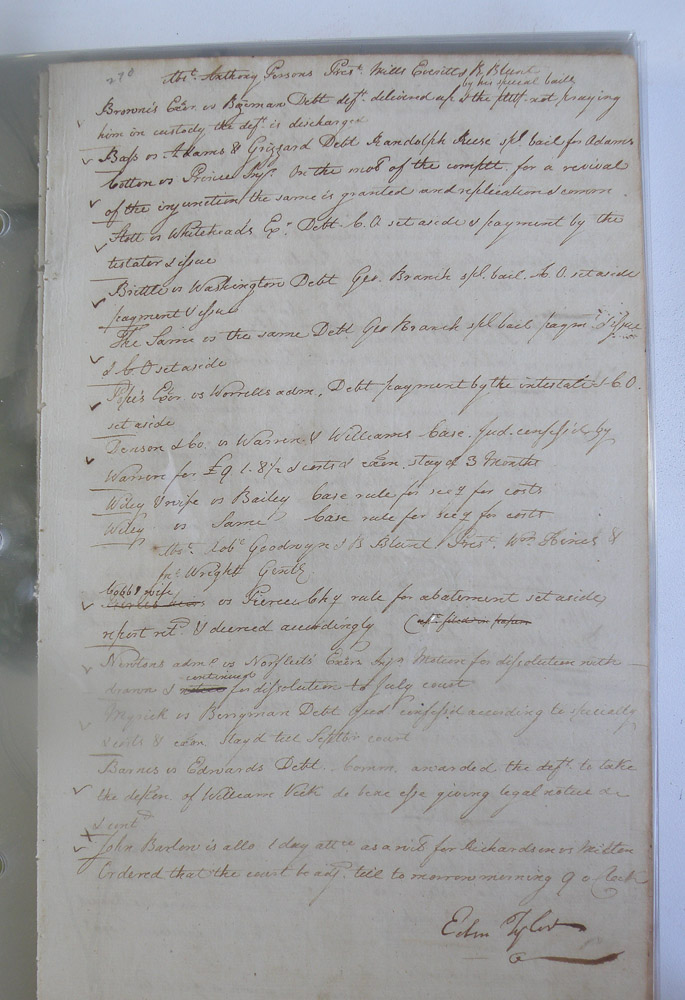 270 Abst. Anthony Persons Prest. Mills Everitt & B. Blunt
by his special bails
Brown's Exor. vs Bozeman Debt deft. delivered up & the pltf. not praying
him in custody the deft. is discharged
Bass vs Adams & Grizzard Debt Randolph Reese spl bail for Adams
Cotton vs Prince Injn. On the moo of the complt. for a revival
of the injunction the same is granted and replication & comm.
Stott vs Whitehead's Exr. Debt C.O set aside & payment by the
testator & issue
Brittle vs Washington Debt Geo. Branch spl. bail. C.O. set aside
payment & issue
The Same vs the same Debt Geo Branch spl bail paymt. & issue
& C O set aside
Pope's Exor vs Worrells adm. Debt payment by the intestate & C O.
set aside
Denson & Co. vs Warren & Williams Case. Jud. confess'd by
Warren for £9.1.8½ & costs & exon. stay of 3 Months
Wiley & wife vs Bailey Case rule for secy for costs
Wiley vs Same Case rule for secy for costs
Abst. Goodwyn & B Blunt Prest. Wm. Hines &
Jno. Wright Gents
Cobb & wife
vs Pierce Chy rule for abatement set aside,
report retd. & decreed accordingly
Newtons adm. vs Norfleets Exors Injn Motion for dissolution with
continued
drawn & for dissolution to July court
Myrick vs Berryman Debt Jud confess'd according to specialty
& costs & exon. Stayd till Septbr court
Barnes vs Edwards Debt. Comm. awarded the deft. to take
the depon of William Vick de bene esse giving legal notice &c
& cont
John Barlow is allo 1 day attce as a wits for Richardson vs Milton
Ordered that the court be adj. till to morrow morning 9 o Clock
Edm Tyler